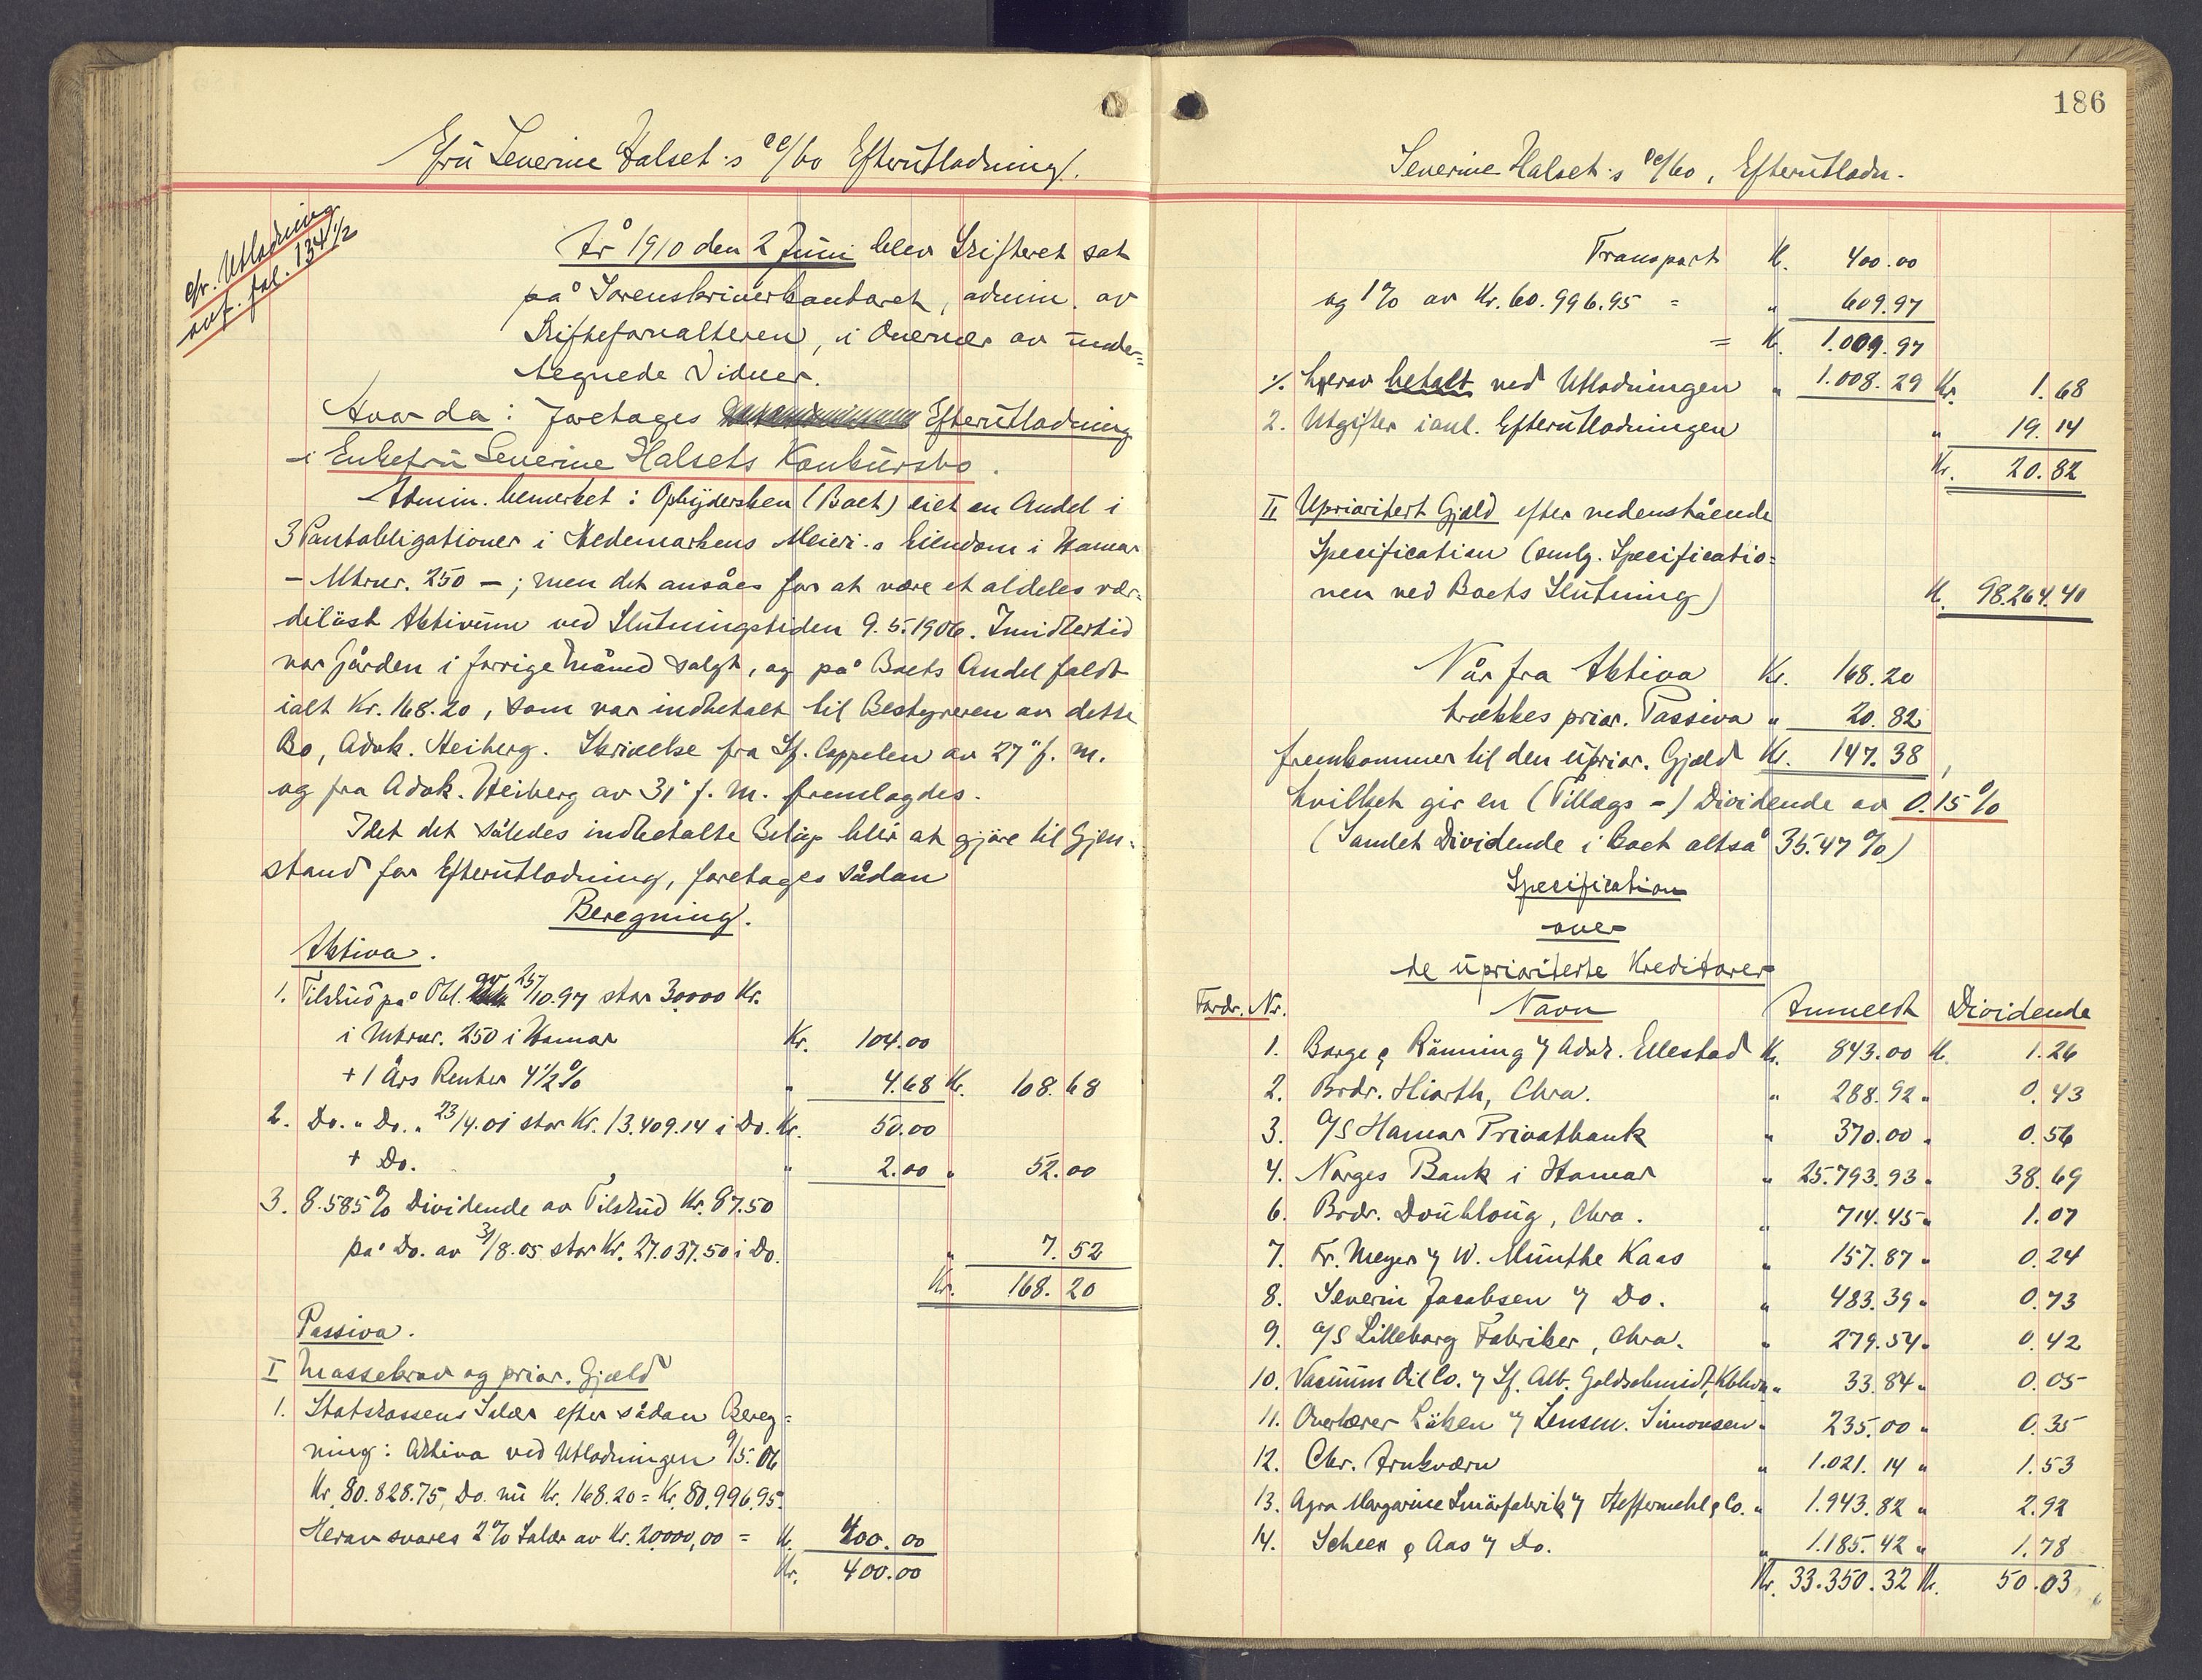 Efru Severine Halset's cc/bo Efterutlodning.
cfr. Utlodning
avt. fol. 134 1/2
År 1910 den 2 Juni blev Skifteret sat
på Sorenskriverkontoret, admin. av
Skifteforvalteren, i Overvær av under-
tegnede Vidner.
Hvorda: foretages Efterutlodning
i Enkefru Severine Halsets Konkursbo.
Admin. bemerket: Opbydersken (Boet) eiet en Andel i
3 Pantobligationer i Hedemarkens Meieri's Eiendom i Hamar
- Mtrnr. 250 -; men det ansåes for at være et aldeles vær-
diløst Aktivum ved Slutningstiden 9.5.1906. Imidlertid
var Gården i forrige Måned solgt, og på Boets Andel faldt
ialt Kr. 168.20, som var indbetalt til Bestyreren av dette
Bo, Advk. Heiberg. Skrivelse fra Sf. Cappelen av 27' f. M.
og fra Advk. Heiberg av 31' f. M. fremlagdes.
Idet det således indbetalte Beløp blir at gjøre til Gjen-
stand for Efterutlodning, foretages sådan
Beregning.
Aktiva.
1. Tilskud på Obl. av 25/10.97 stor 30000 Kr.
i Mtrnr. 250 i Hamar Kr. 104.00
+ 1 Års Renter 4 1/2 % " 4.68 Kr. 108.68
2. Do. " Do. " 23/4.01 stor Kr. 13.409.14 i Do. Kr. 50.00
+ Do. " 2.00 " 52.00
3. 8.585 % Dividende av Tilskud Kr. 87.50
på Do. av 31/8.05 stor Kr. 27.037.50 i Do. " 7.52
Kr. 168.20
Passiva.
I Massekrav og prior. Gjæld
1. Statskassens Salær efter sådan Bereg-
ning: Aktiva ved Utlodningen 9/5.06
Kr. 80.828.75, Do. nu Kr. 168.20 = Kr. 80.996.95.
Herav svares 2 % Salær av Kr. 20000,00 = Kr. 400.00
Kr. 400.00
186
Severine Halset's cc/bo, Efterutlodn.
Transport Kr. 400.00
og 1 % av Kr. 60.996.95 = " 609.97
= Kr. 1.009.97
% herav betalt ved Utlodningen " 1.008.29 Kr. 1.68
2. Utgifter i anl. Efterutlodningen " 19.14
Kr. 20.82
II Uprioritert Gjæld efter nedenstående
Specification (smlg. Specificatio-
nen ved Boets Slutning) Kr. 98.264.40
Når fra Aktiva Kr. 168.20
trækkes prior. Passiva " 20.82
fremkommer til den uprior. Gjæld Kr. 147.38,
hvilket gir en (Tillægs-) Dividende av 0.15 %
(Samlet Dividende i Boet altså 35.47 %)
Specification
over
de uprioriterte Kreditorer
Fordr. Nr. Navn Anmeldt Dividende
1. Borge & Rönning v/ Advk. Ellestad Kr. 843.00 Kr. 1.26
2. Brdr. Hiorth, Chra. " 288.92 " 0.43
3. A/S Hamar Privatbank " 370.00 " 0.56
4. Norges Bank i Hamar " 25.793.93 " 38.69
6. Brdr. Doublong, Chra. " 714.45 " 1.07
7. Fr. Meyer v/ W. Munthe Kaas " 157.87 " 0.24
8. Severin Jacobsen v/ Do. " 483.39 " 0.73
9. A/S Lilleborg Fabriker, Chra. " 279.54 " 0.42
10. Vacuum Oil Co. v/ Sf. Alb. Goldschmidt, Kbhvn " 33.84 " 0.05
11. Overlærer Löken v/ Lensm. Simonsen " 235.00 " 0.35
12. Chr. Arnkværn " 1.021.14 " 1.53
13. Agra Margarine Smörfabrik v/ Heffermehl & Co. " 1.943.82 " 2.92
14. Scheen & Aas v/ Do. " 1.185.42 " 1.78
Kr. 33.350.32 Kr. 50.03